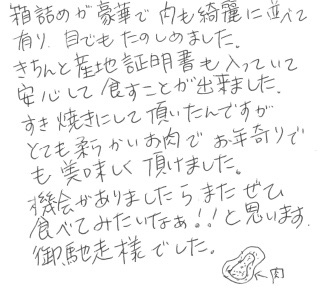 箱詰めが豪華で肉も綺麗に並べて
有り、目でもたのしめました。
きちんと産地証明書も入っていて
安心して食すことが出来ました。
すき焼きにして頂いたんですが
とても柔らかいお肉でお年寄りで
も美味しく頂けました。
機会がありましたらまたぜひ
食べてみたいなぁ!!と思います。
御馳走様でした。
肉